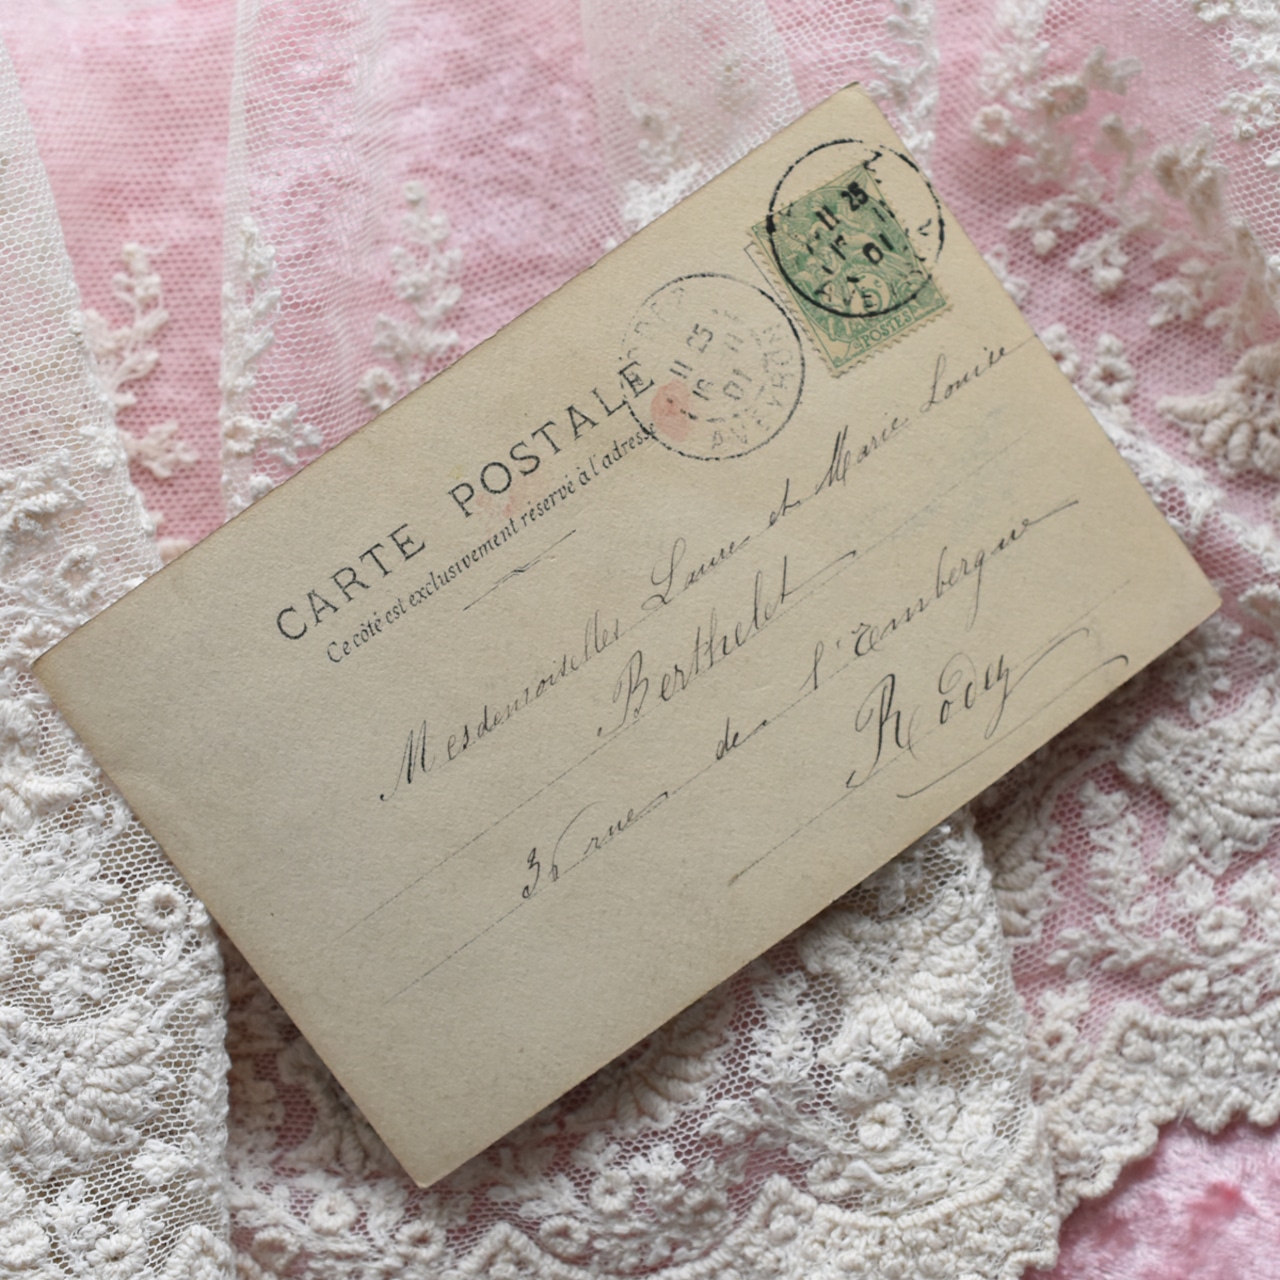 CARTE POSTALE
Ce côté est exclusivement réservé à l'adresse
11 25
11
01
AVEYRON
11 25
11
01
AVE
5
POSTES
Mesdemoiselles Laure et Marie Louise
Berthelet
36 rue de l'Embergue
Rodez